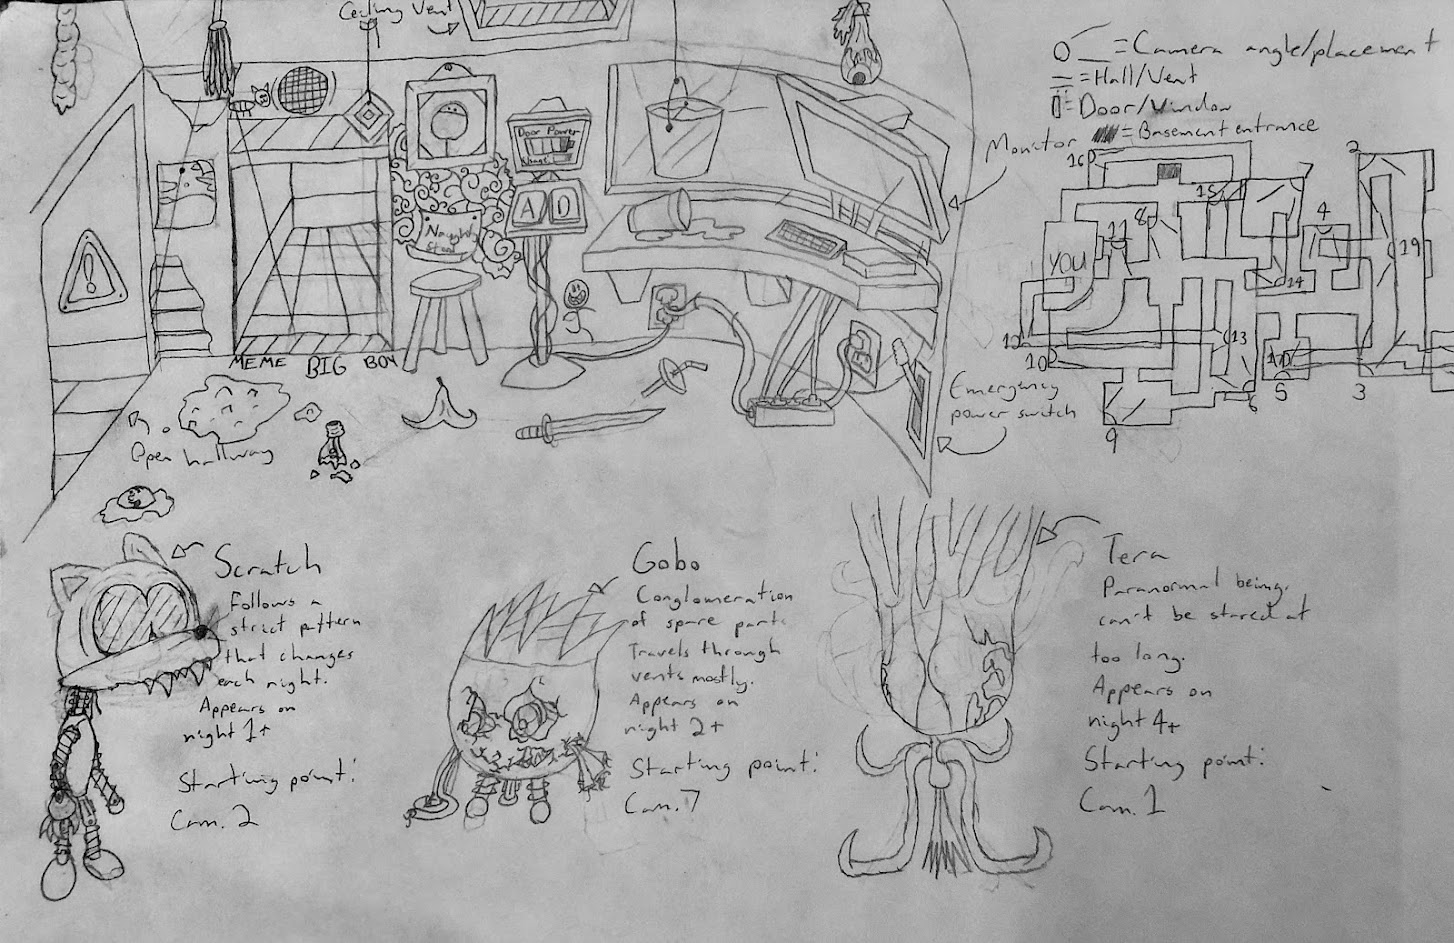 Ceiling Vent
Door Power
Usage:
A D
Naughty
Stool
MEME BIG BOY
Open hallway
Monitor
Emergency
power switch
= Camera angle/placement
= Hall/Vent
= Door/Window
= Basement entrance
16
15
2
4
8
11
YOU
19
14
12
10
13
6
5
3
9
Scratch
Follows a
strict pattern
that changes
each night.
Appears on
night 1+
Starting point:
Cam. 2
Gobo
Conglomeration
of spare parts
Travels through
vents mostly.
Appears on
night 2+
Starting point:
Cam. 7
Tera
Paranormal being,
can't be stared at
too long.
Appears on
night 4+
Starting point:
Cam. 1